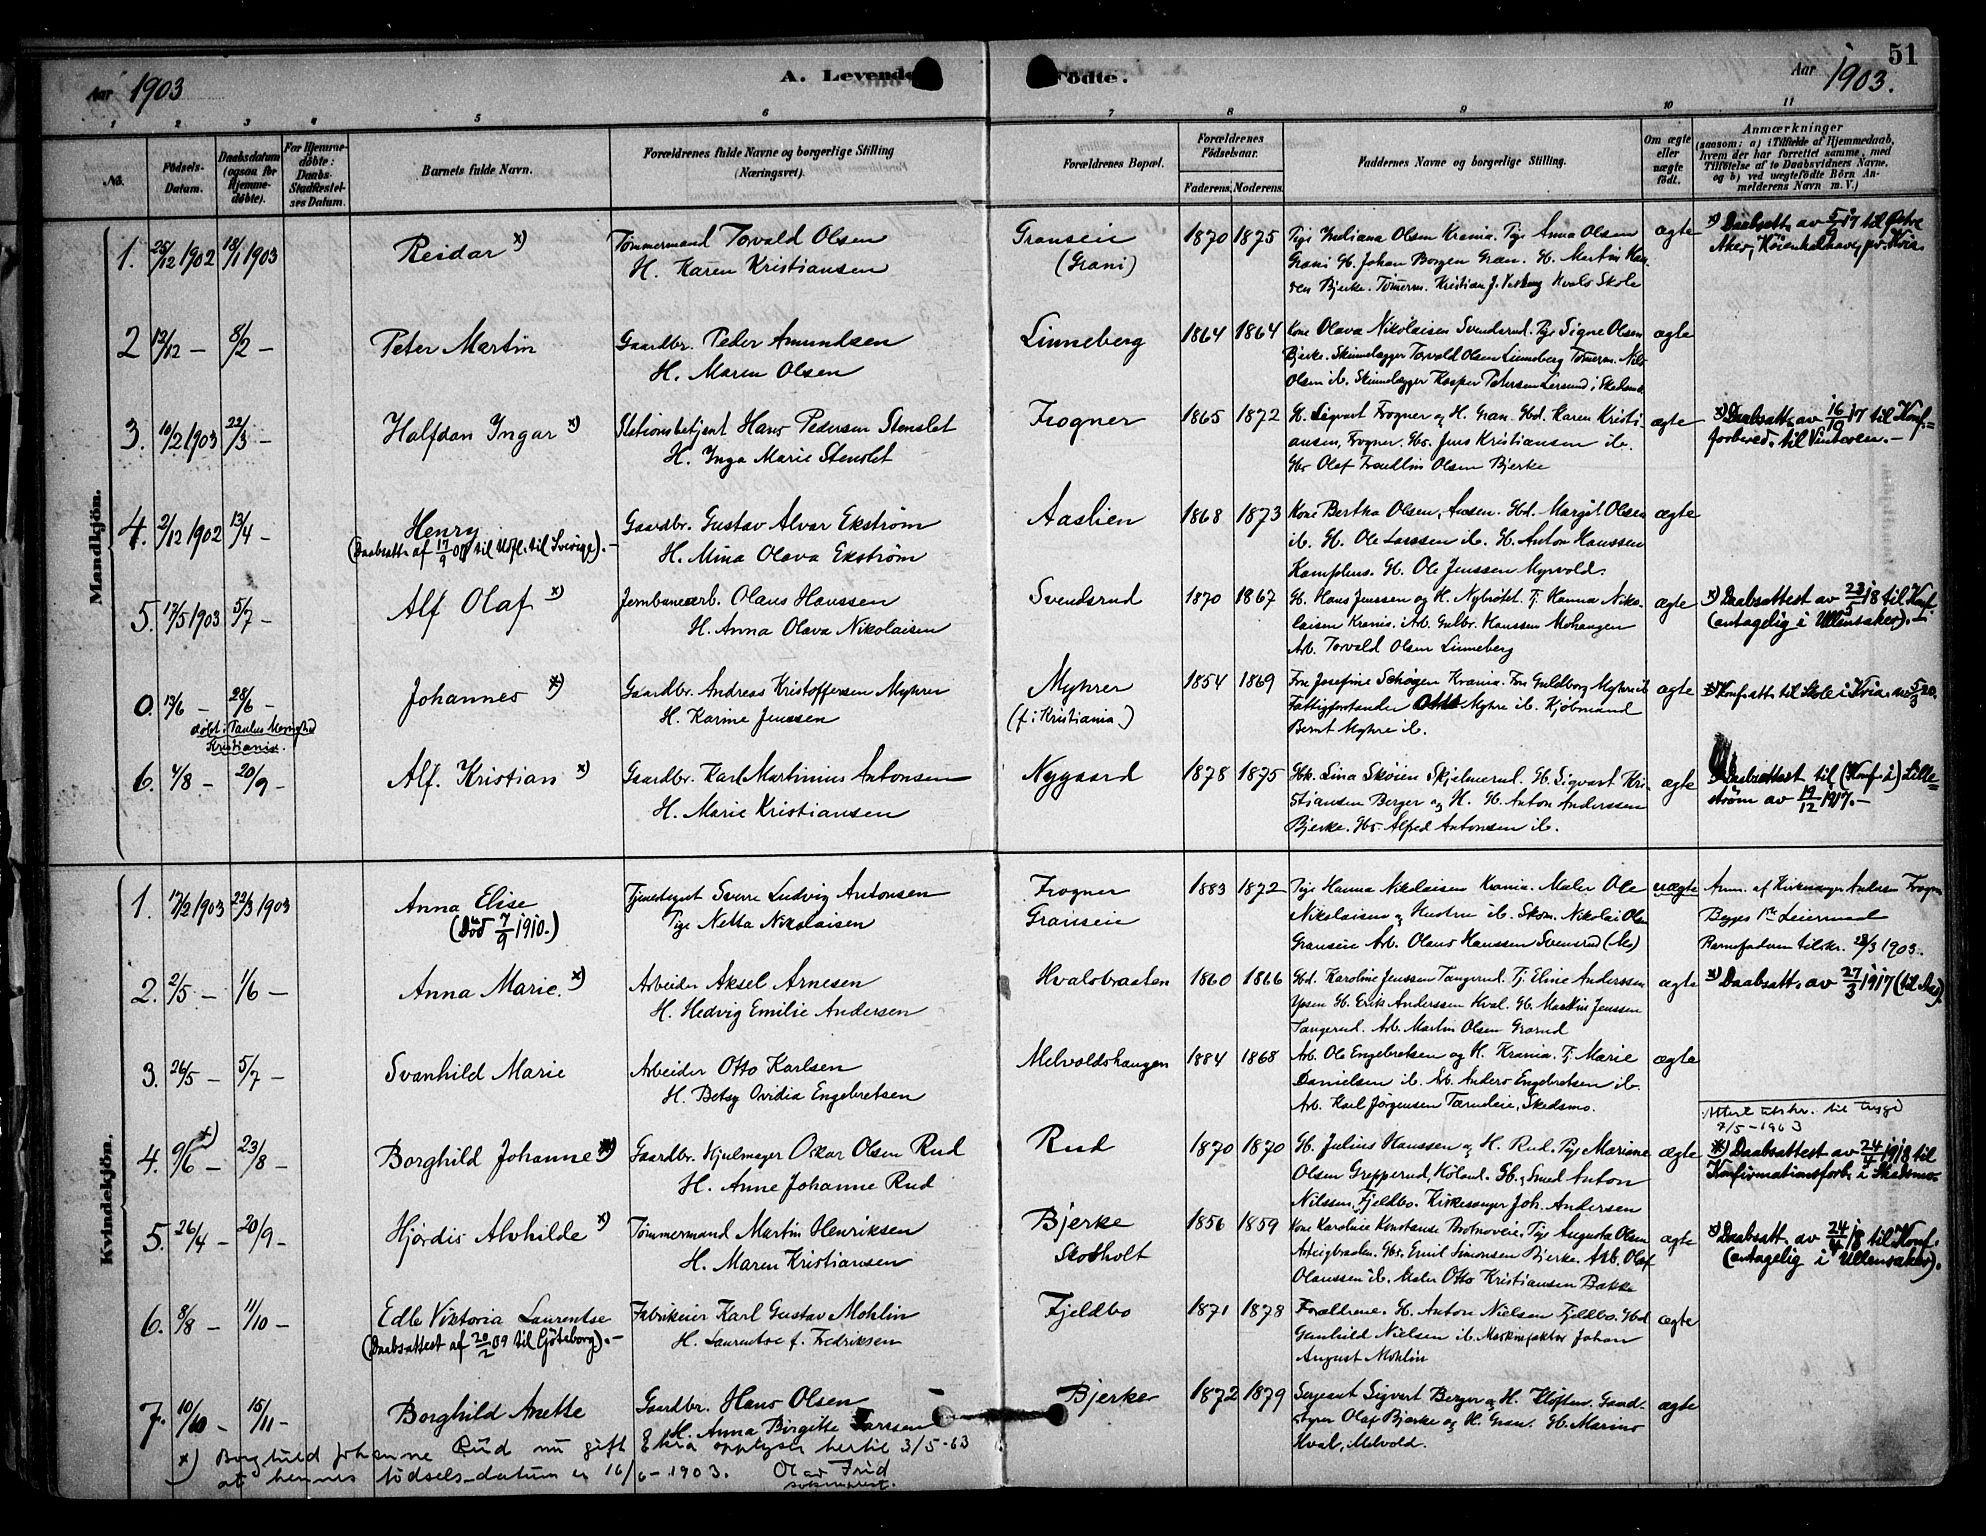 51
Aar 1903
A. Levende
Födte.
Aar 1903.
1 2 3 4 5 6 7 8 9 10 11
No.
Födsels-Datum.
Daabsdatum (ogsaa for Hjemme-döbte).
For Hjemme-döbte: Daabs-Stadfæstel-ses Datum.
Barnets fulde Navn.
Forældrenes fulde Navne og borgerlige Stilling (Næringsvei).
Forældrenes Bopæl.
Forældrenes Födselsaar.
Faderens. Moderens.
Faddernes Navne og borgerlige Stilling.
Om ægte eller uægte födt.
Anmærkninger
(saasom: a) i Tilfælde af Hjemmedaab, hvem der har forrettet samme, med Tilföielse af to Daabsvidners Navne, og b) ved uægtefödte Börn An-melderens Navn m. V.)
Mandkjön.
1. 25/12 1902 18/1 1903 Reidar x) Tømmermand Torvald Olsen
H. Karen Kristiansen
Granseie (Grani) 1870 1875
Pige Juliana Olsen Krania. Pige Anna Olsen
Grani Gb. Johan Borgen Gran. Gb. Martin Han-
sen Bjerke. Tømerm. Kristian J. Hvals Skole
ægte
x) Daabsatt. av 5/9 17 til Østre
Aker,
2 12/12 — 8/2 — Peter Martin Gaardbr. Peder Amundsen
H. Maren Olsen
Linneberg 1864 1864
Kone Olava Nikolaisen Svendsrud. Pige Signe Olsen
Bjerke. Skinnelægger Torvald Olsen Linneberg Tømerm. Nils
Olsen ib. Skinnelægger Kasper Petersen Lersund i Skedsmo
ægte
3. 10/2 1903 22/3 — Halfdan Ingar x) Stationsbetjent Hans Pedersen Stenslet
H. Inga Marie Stenslet
Frogner 1865 1872
Gb. Sigvart Frogner og H. Gran. Gbd. Karen Kristi-
ansen, Frogner. Gbs. Jens Kristiansen ib.
Gbs Olaf Olsen Bjerke
ægte
x) Daabsatt. av 16/10 17 til Konf.=
forbered. til Vestoven.—
4. 2/12 1902 13/4 — Henry
(Daabsatt. af 17/9 09 til Udfl. til Sverige).—
Gaardbr. Gustav Alvar Ekstrøm
H. Mina Olava Ekstrøm
Aaslien 1868 1873
Kone Bertha Olsen, Aasen. Gbd. Margit Olsen
ib. Gb. Ole Larssen ib. Gb. Anton Hanssen
Kamphus. Gb. Ole Jenssen Myrvold.
ægte
5. 17/5 1903 5/7 — Alf Olaf x) Jernbanearb. Olaus Hanssen
H. Anna Olava Nikolaisen
Svendsrud 1870 1867
Gb. Hans Jenssen og H. Nybrøtet. Tj. Hanna Niko-
laisen Krania. Arb. Gulbr. Hanssen Mohaugen
Arb. Torvald Olsen Linneberg
ægte
x) Daabsattest av 23/5 18 til Konf.
(antagelig i Ullensaker).—
0. 13/6 — 28/6 — Johannes x)
døbt i Paulus Menighed
Kristiania.
Gaardbr. Andreas Kristoffersen Myhrer
H. Karine Jenssen
Myhrer
(f. i Kristiania.) 1854 1869
Fru Josefine Schøyen Krania. Fru Guldborg Myhre ib
Fattigforstander Otto Myhre ib. Kjøbmand
Bernt Myhre ib.
ægte
x) Konf.att. til Skole i Kria. 5/3 20.
6. 4/8 — 20/9 — Alf. Kristian x) Gaardbr. Karl Martinius Antonsen
H. Marie Kristiansen
Nygaard 1878 1875
Gbk. Lina Skøien Skjelmerud. Gb. Sigvart Kri-
stiansen Berger og H. Gb. Anton Anderssen
Bjerke. Gbs. Alfred Antonsen ib.
ægte
Daabsattest til (Konf. i) Lille=
strøm av 19/12 1917.—
Kvindekjön.
1. 17/2 1903 22/3 1903 Anna Elise
(Død 7/9 1910.)
Tjenestegut Sverre Ludvig Antonsen
Pige Netta Nikolaisen
Frogner
Granseie 1883 1872
Pige Hanna Nikolaisen Krania. Maler Ole
Nikolaisen og Hustru ib. Skom. Nikolai Olsen
Granseie Arb. Olaus Hanssen Svensrud
uægte
Anm. af Kirkesanger Anders Frogner
Begges 1ste Leiermaal
Barnefaderen tilskr. 28/3 1903.
2. 2/5 — 1/6 — Anna Marie. x) Arbeider Aksel Arnesen
H. Hedvig Emilie Andersen
Hvalsbraaten 1860 1866
Gbd. Karoline Jenssen Tangerud. Tj. Eline Anderssen
Ypsen Gb. Erik Anderssen Hval. Gb. Martin Jenssen
Tangerud. Arb. Martin Olsen Grorud
ægte
x) Daabsatt. av 27/3 1917
3. 26/5 — 5/7 — Svanhild Marie Arbeider Otto Karlsen
H. Betsy Ovidia Engebretsen
Melvoldshaugen 1884 1868
Arb. Ole Engebretsen og H. Krania. Tj. Marie
Danielsen ib. Arb. Anders Engebretsen ib.
Arb. Karl Jørgensen Tærudeie, Skedsmo.
ægte
Attest utskr. til trygd
7/5-1963
4. 9/6 x) — 23/8 — Borghild Johanne x) Gaardbr. Hjulmager Oskar Olsen Rud
H. Anne Johanne Rud
Rud 1870 1870
Gb. Julius Hanssen og H. Rud. Pige Mariane
Olsen Grepperud, Høland. Gb. Smed Anton
Nilssen, Fjeldbo. Kirkesanger Joh. Andersen
ægte
x) Daabsattest av 24/4 1918 til
Konfirmationsforb. i Skedsmo.
5. 26/4 — 20/9 — Hjørdis Alvhilde x) Tømmermand Martin Henriksen
H. Maren Kristiansen
Bjerke
Skotholt 1856 1859
Kone Karoline Konstanse Pige Augusta Olsen
Gbs. Emil Simonsen Bjerke. Arb. Olaf
Olaussen ib. Maler Otto Kristiansen Bakke
ægte
x) Daabsatt. av 24/4 18 til Konf.
(antagelig i Ullensaker).
6. 8/8 — 11/10 — Edle Viktoria Laurentse
(Daabsattest af 20/2 09 til Göteborg).—
Fabrikeier Karl Gustav Mohlin
H. Laurentse f. Fredriksen
Fjeldbo 1871 1878
Forældrene. Gb. Anton Nielsen Fjeldbo. Gbd
Gunhild Nielsen ib. Johan
August Mohlin
ægte
7. 10/10 — 15/11 — Borghild Anette Gaardbr. Hans Olsen
H. Anna Birgitte Larssen
Bjerke 1872 1879
Sergeant Sigvart Berger og H. Kløften. Gaard-
styrer Olaf Bjerke og H. Gran. Gb. Marius
Hval, Melvold.
ægte
x) Borghild Johanne Rud nu gift opplyser hertil 3/5-63
at hennes fødsels-datum er 16/6-1903. Olav
sokneprest.